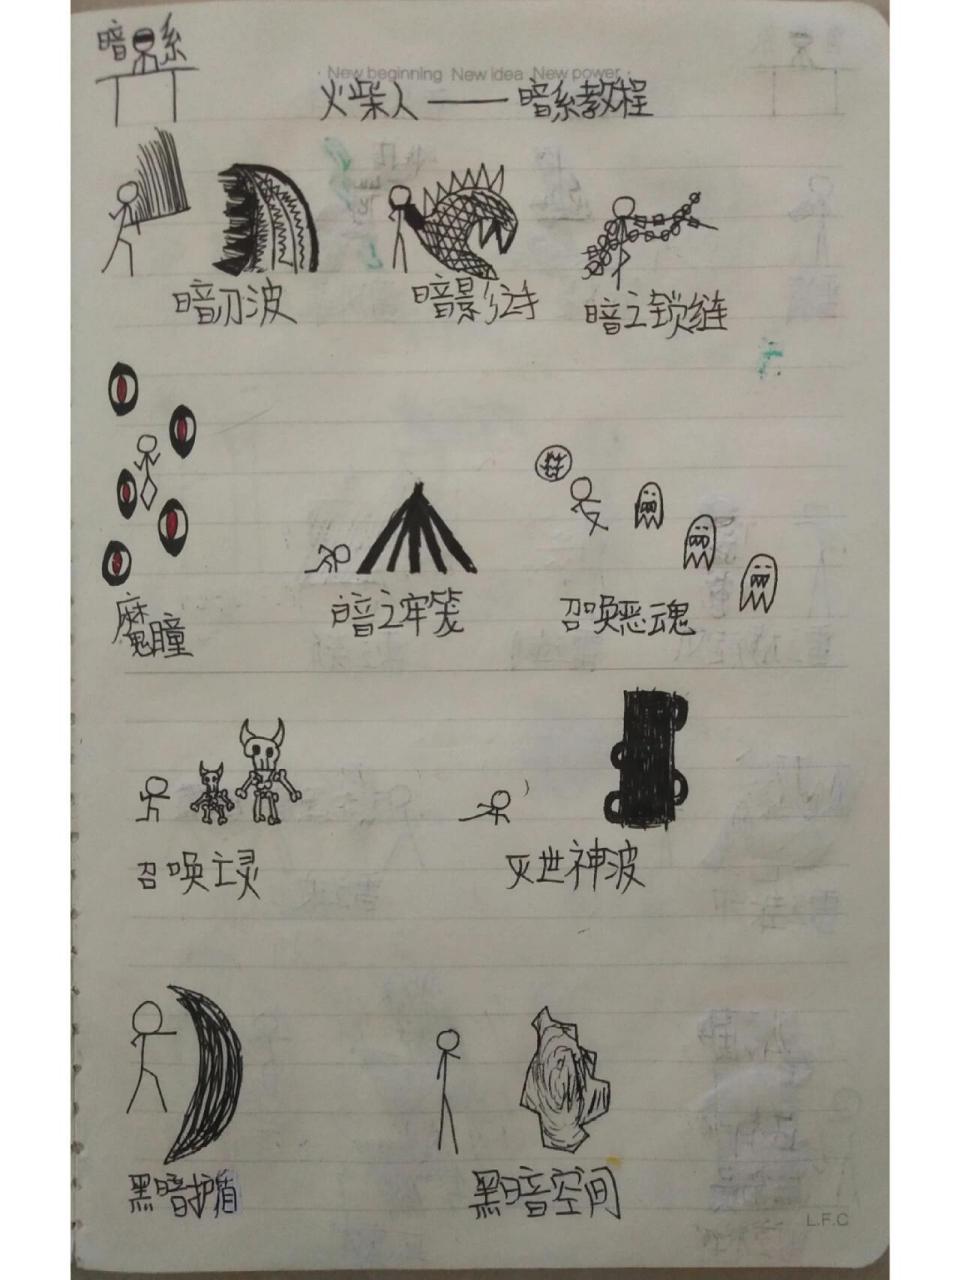 暗系
New beginning New idea New power
火柴人——暗系教程
暗刃波
暗影之手
暗之锁链
魔瞳
暗之牢笼
召唤恶魂
召唤亡灵
灭世神波
黑暗护盾
黑暗空间
L.F.C